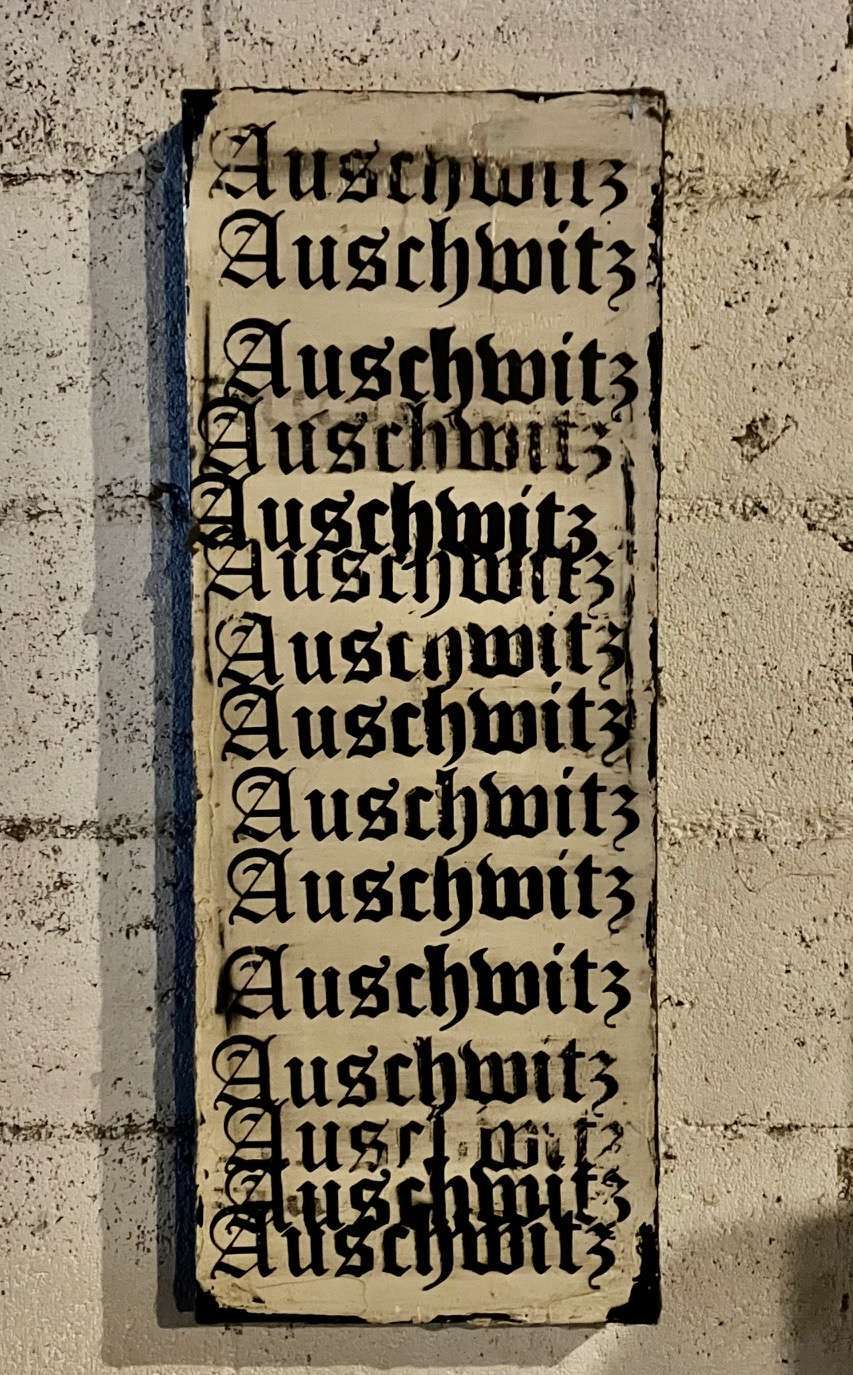 Auschwitz
Auschwitz
Auschwitz
Auschwitz
Auschwitz
Auschwitz
Auschwitz
Auschwitz
Auschwitz
Auschwitz
Auschwitz
Auschwitz
Auschwitz
Auschwitz
Auschwitz